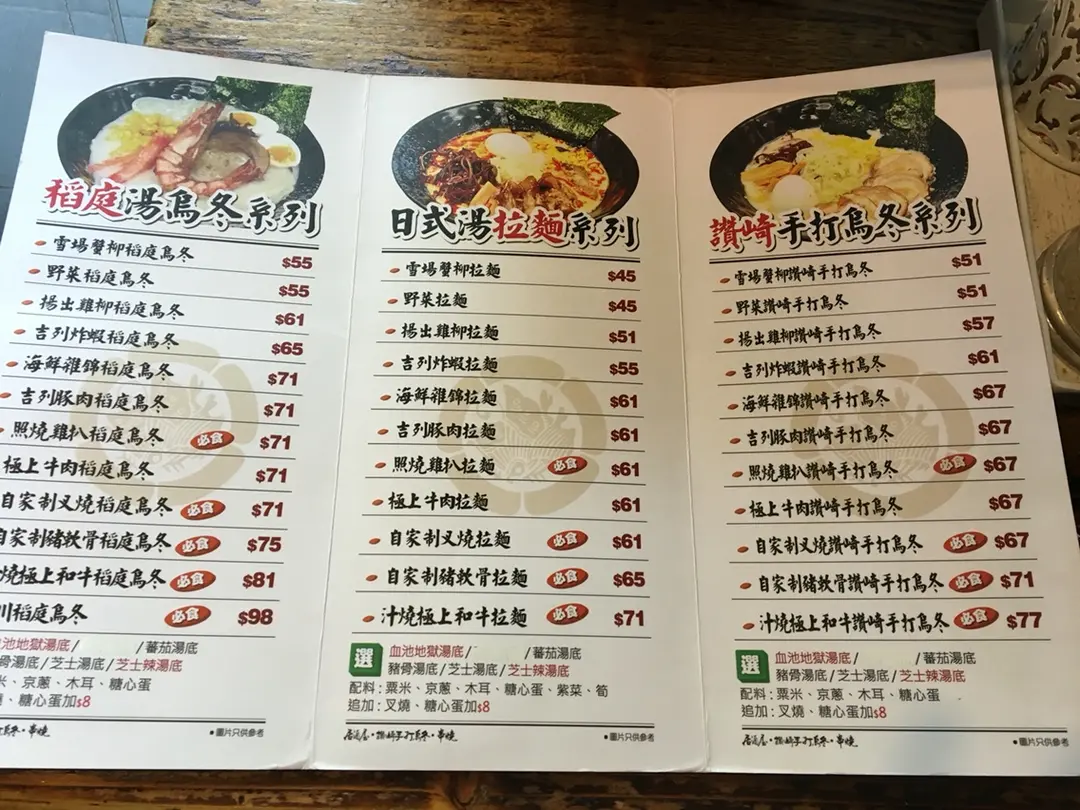 稻庭湯烏冬系列
雪場蟹柳稻庭烏冬 $55
野菜稻庭烏冬 $55
揚出雞柳稻庭烏冬 $61
吉列炸蝦稻庭烏冬 $65
海鮮雜錦稻庭烏冬 $71
吉列豚肉稻庭烏冬 $71
照燒雞扒稻庭烏冬 必食 $71
極上牛肉稻庭烏冬 $71
自家制叉燒稻庭烏冬 必食 $71
自家制豬軟骨稻庭烏冬 必食 $75
燒極上和牛稻庭烏冬 必食 $81
稻庭烏冬 必食 $98
血池地獄湯底/ /蕃茄湯底
骨湯底/芝士湯底/芝士辣湯底
米、京蔥、木耳、糖心蛋
、糖心蛋加$8
手打烏冬・串燒
●圖片只供參考
日式湯拉麵系列
雪場蟹柳拉麵 $45
野菜拉麵 $45
揚出雞柳拉麵 $51
吉列炸蝦拉麵 $55
海鮮雜錦拉麵 $61
吉列豚肉拉麵 $61
照燒雞扒拉麵 必食 $61
極上牛肉拉麵 $61
自家制叉燒拉麵 必食 $61
自家制豬軟骨拉麵 必食 $65
汁燒極上和牛拉麵 必食 $71
選
血池地獄湯底/ /蕃茄湯底
豬骨湯底/芝士湯底/芝士辣湯底
配料:粟米、京蔥、木耳、糖心蛋、紫菜、筍
追加:叉燒、糖心蛋加$8
居酒屋・讚崎手打烏冬・串燒
●圖片只供參考
讚崎手打烏冬系列
雪場蟹柳讚崎手打烏冬 $51
野菜讚崎手打烏冬 $51
揚出雞柳讚崎手打烏冬 $57
吉列炸蝦讚崎手打烏冬 $61
海鮮雜錦讚崎手打烏冬 $67
吉列豚肉讚崎手打烏冬 $67
照燒雞扒讚崎手打烏冬 必食 $67
極上牛肉讚崎手打烏冬 $67
自家制叉燒讚崎手打烏冬 必食 $67
自家制豬軟骨讚崎手打烏冬 必食 $71
汁燒極上和牛讚崎手打烏冬 必食 $77
選
血池地獄湯底/ /蕃茄湯底
豬骨湯底/芝士湯底/芝士辣湯底
配料:粟米、京蔥、木耳、糖心蛋
追加:叉燒、糖心蛋加$8
居酒屋・讚崎手打烏冬・串燒
●圖片只供參考